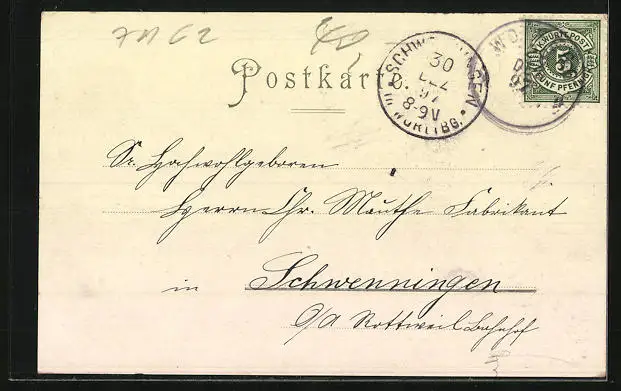 7M 62
Postkarte
SCHWENNINGEN
30
DEZ
97
8-9V
WÜRTTBG.
K.WÜRTT.POST
5
FÜNF PFENNIG
Sr. Hochwohlgeboren
Herrn Chr. Mauthe Fabrikant
in Schwenningen
O/A Rottweil Bahnhof